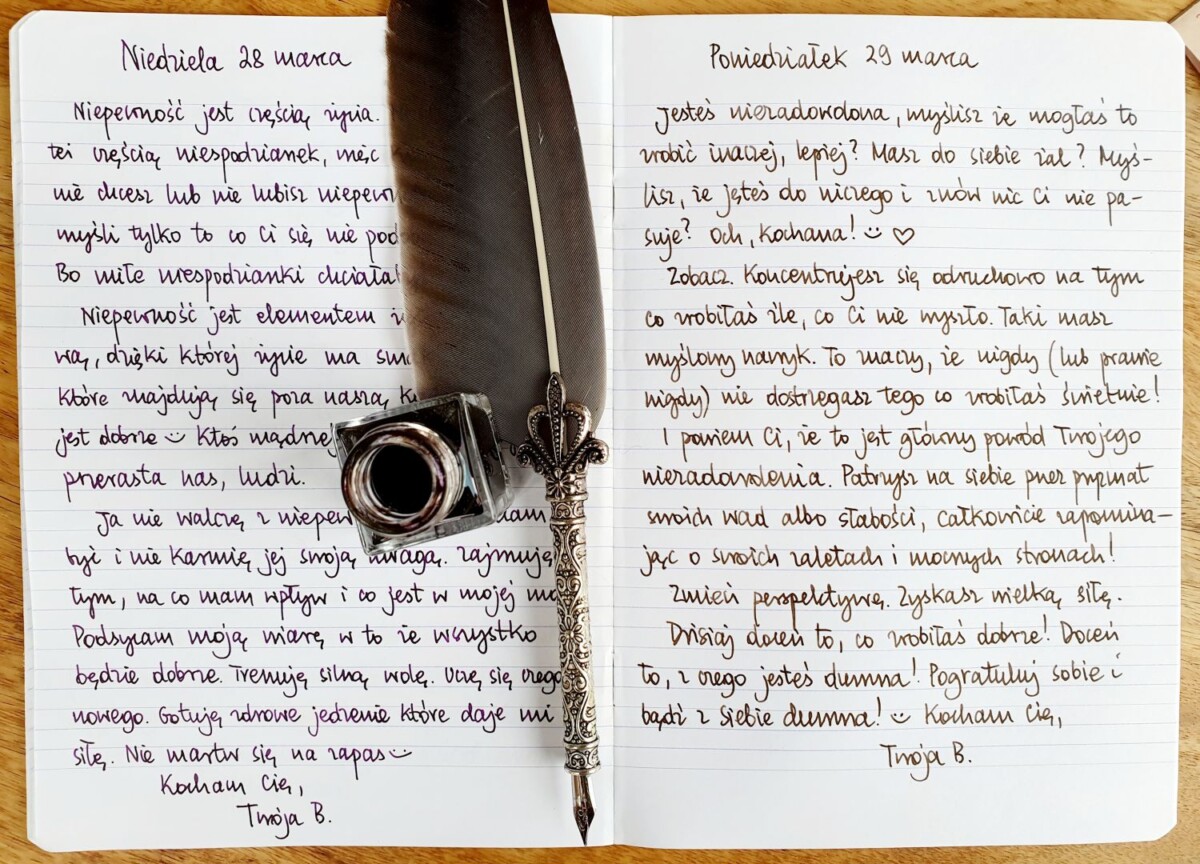 Niedziela 28 marca
Niepewność jest częścią życia.
też częścią niespodzianek, więc
nie chcesz lub nie lubisz niepewn
myśli tylko to co Ci się nie pod
Bo miłe niespodzianki chciała
Niepewność jest elementem
wa, dzięki której życie ma
które znajdują się poza naszą
jest dobrze Ktoś mądrze
przerasta nas, ludzi.
Ja nie walczę z niepew
być i nie karmię jej swoją uwagą. Zajmuję
tym, na co mam wpływ i co jest w mojej
Podsycam moją wiarę w to że wszystko
będzie dobrze. Trenuję silną wolę. Uczę się czego
nowego. Gotuję zdrowe jedzenie które daje mi
siłę. Nie martw się na zapas
Kocham Cię,
Twoja B.
Poniedziałek 29 marca
Jesteś niezadowolona, myślisz że mogłaś to
zrobić inaczej, lepiej? Masz do siebie żal? Myś-
lisz, że jesteś do niczego i znów nic Ci nie pa-
suje? Och, Kochana! ☺ ♡
Zobacz. Koncentrujesz się odruchowo na tym
co zrobiłaś źle, co Ci nie wyszło. Taki masz
myślowy nawyk. To znaczy, że nigdy (lub prawie
nigdy) nie dostrzegasz tego co zrobiłaś świetnie!
I powiem Ci, że to jest główny powód Twojego
niezadowolenia. Patrzysz na siebie przez pryzmat
swoich wad albo słabości, całkowicie zapomina-
jąc o swoich zaletach i mocnych stronach!
Zmień perspektywę. Zyskasz wielką siłę.
Dzisiaj doceń to, co zrobiłaś dobrze! Doceń
to, z czego jesteś dumna! Pogratuluj sobie i
bądź z siebie dumna! ☺ Kocham Cię,
Twoja B.